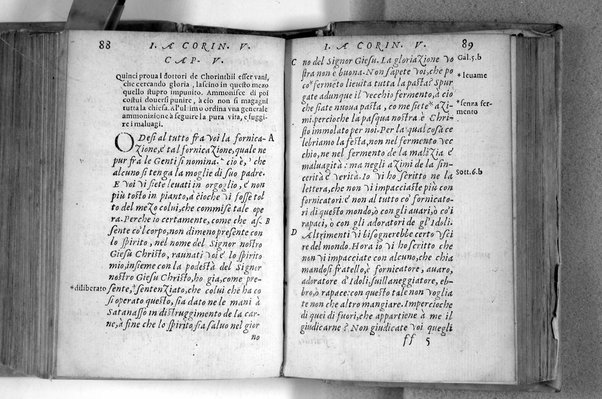 88
I. A CORIN. V.
CAP. V.
Quinci proua i dottori de Chorinthii esser vani,
che cercando gloria, lascino in questo mezo
quello stupro impunito. Ammonisce di poi
costui douersi punire, acio non si magagni
tutta la chiesa. Al'ultimo ordina vna generale
ammonizione à seguire la pura vita, e fuggi-
re i maluagi.
ODesi al tutto fra voi la fornica- A
zione, è tal fornicazione, quale ne
pur frà le Genti si nomina. cio è, che
alcuno si tenga la moglie di suo padre.
E voi vi siete leuati in orgoglio, è non
più tosto in pianto, à cioche vi fosse tol
to del mezo colui, che commise tale ope
ra. Perche io certamente, come che as- B
sente co'l corpo, non dimeno presente con
lo spirito, nel nome del Signor nostro
Giesu Christo, raunati voi è lo spirito
mio, insieme con la podestà del Signor
nostro Giesu Christo, ho gia, come pre-
*diliberato
sente, *sentenziato, che colui che ha co
si operato questo, sia dato ne le mani à
Satanasso in distruggimento de la car-
ne, à fine che lo spirito sia saluo nel gior
no
I. A CORIN. V.
89
C no del Signor Giesu. La gloriazione vo
Gal.5.b
stra non è buona. Non sapete voi, che po
co *fermeto lieuita tutta la pasta? Spur
* leuame
gate adunque il vecchio fermento, à cio
che siate nuoua pasta, come siete *azi-
*senza fer-
mento
mi. percioche la pasqua nostra è Chri-
sto immolato per noi. Per la qual cosa ce
lebriamo la festa, non nel fermento vec
chio, ne nel fermento de la malizia è
maluagità: ma negli azimi de la sin-
cerità è verità. Io vi ho scritto ne la
Sott.6.b
lettera, che non vi impacciaste più con
fornicatori. è non al tutto co' fornicato-
ri di questo mondo, ò con gli auari, ò co' i
rapaci, ò con gli adoratori de gl'Idoli.
D Altrimenti vi bisognerebbe certo vsci
re del mondo. Hora io vi ho scritto che
non vi impacciate con alcuno, che chia
mandosi fratello, è fornicatore, auaro,
adoratore d'Idoli, suillaneggiatore, eb-
bro, ò rapace: con questo tale non voglia
te non che altro mangiare. Impercioche
di quei di fuori, che appartiene à me il
giudicarne? Non giudicate voi quegli
ff 5